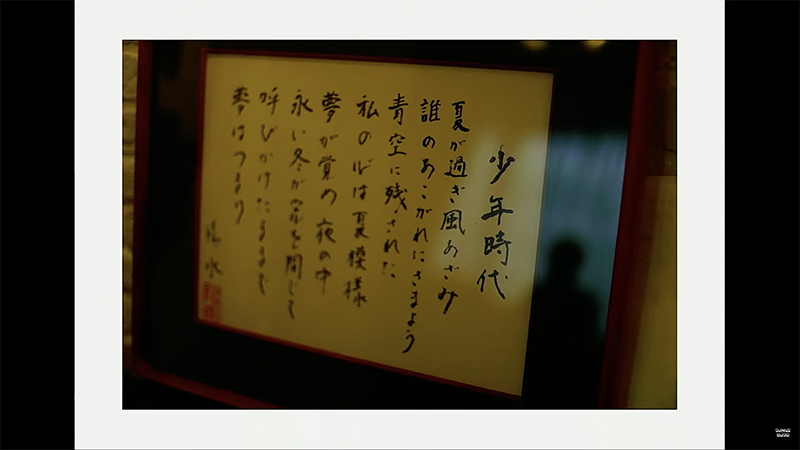 少年時代
夏が過ぎ風あざみ
誰のあこがれにさまよう
青空に残された
私の心は夏模様
夢が覚め夜の中
永い冬が窓を閉じて
呼びかけたままで
夢はつまり
陽水